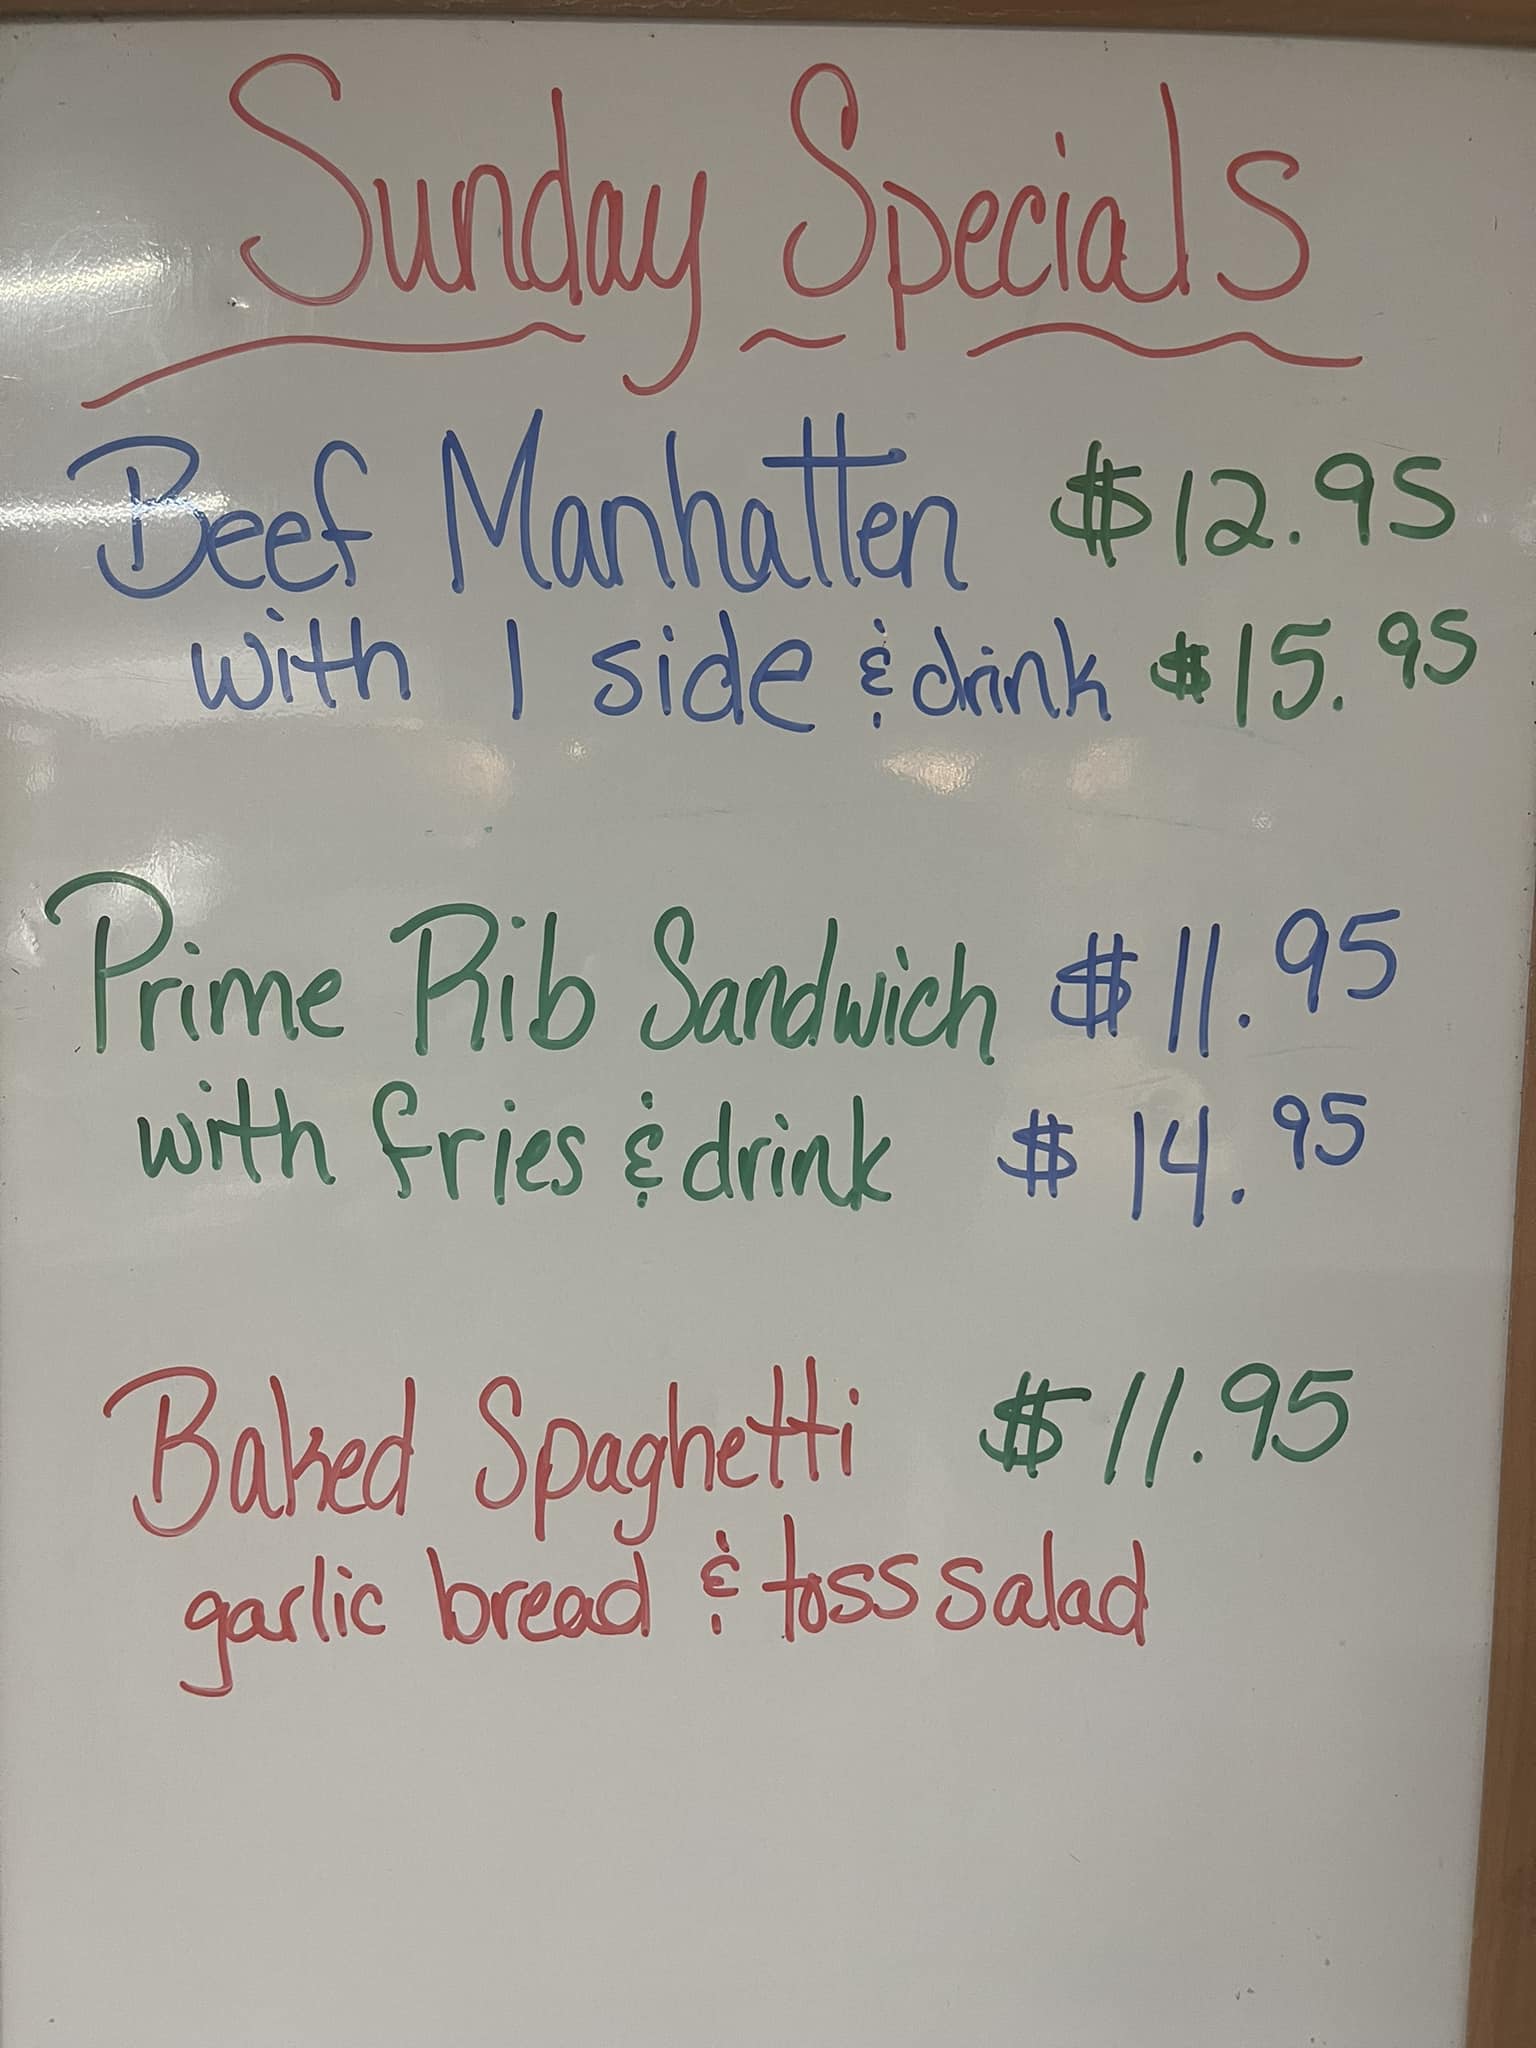 Sunday Specials
Beef Manhatten $12.95
with 1 side & drink $15.95
Prime Rib Sandwich $11.95
with fries & drink $14.95
Baked Spaghetti $11.95
garlic bread & toss salad